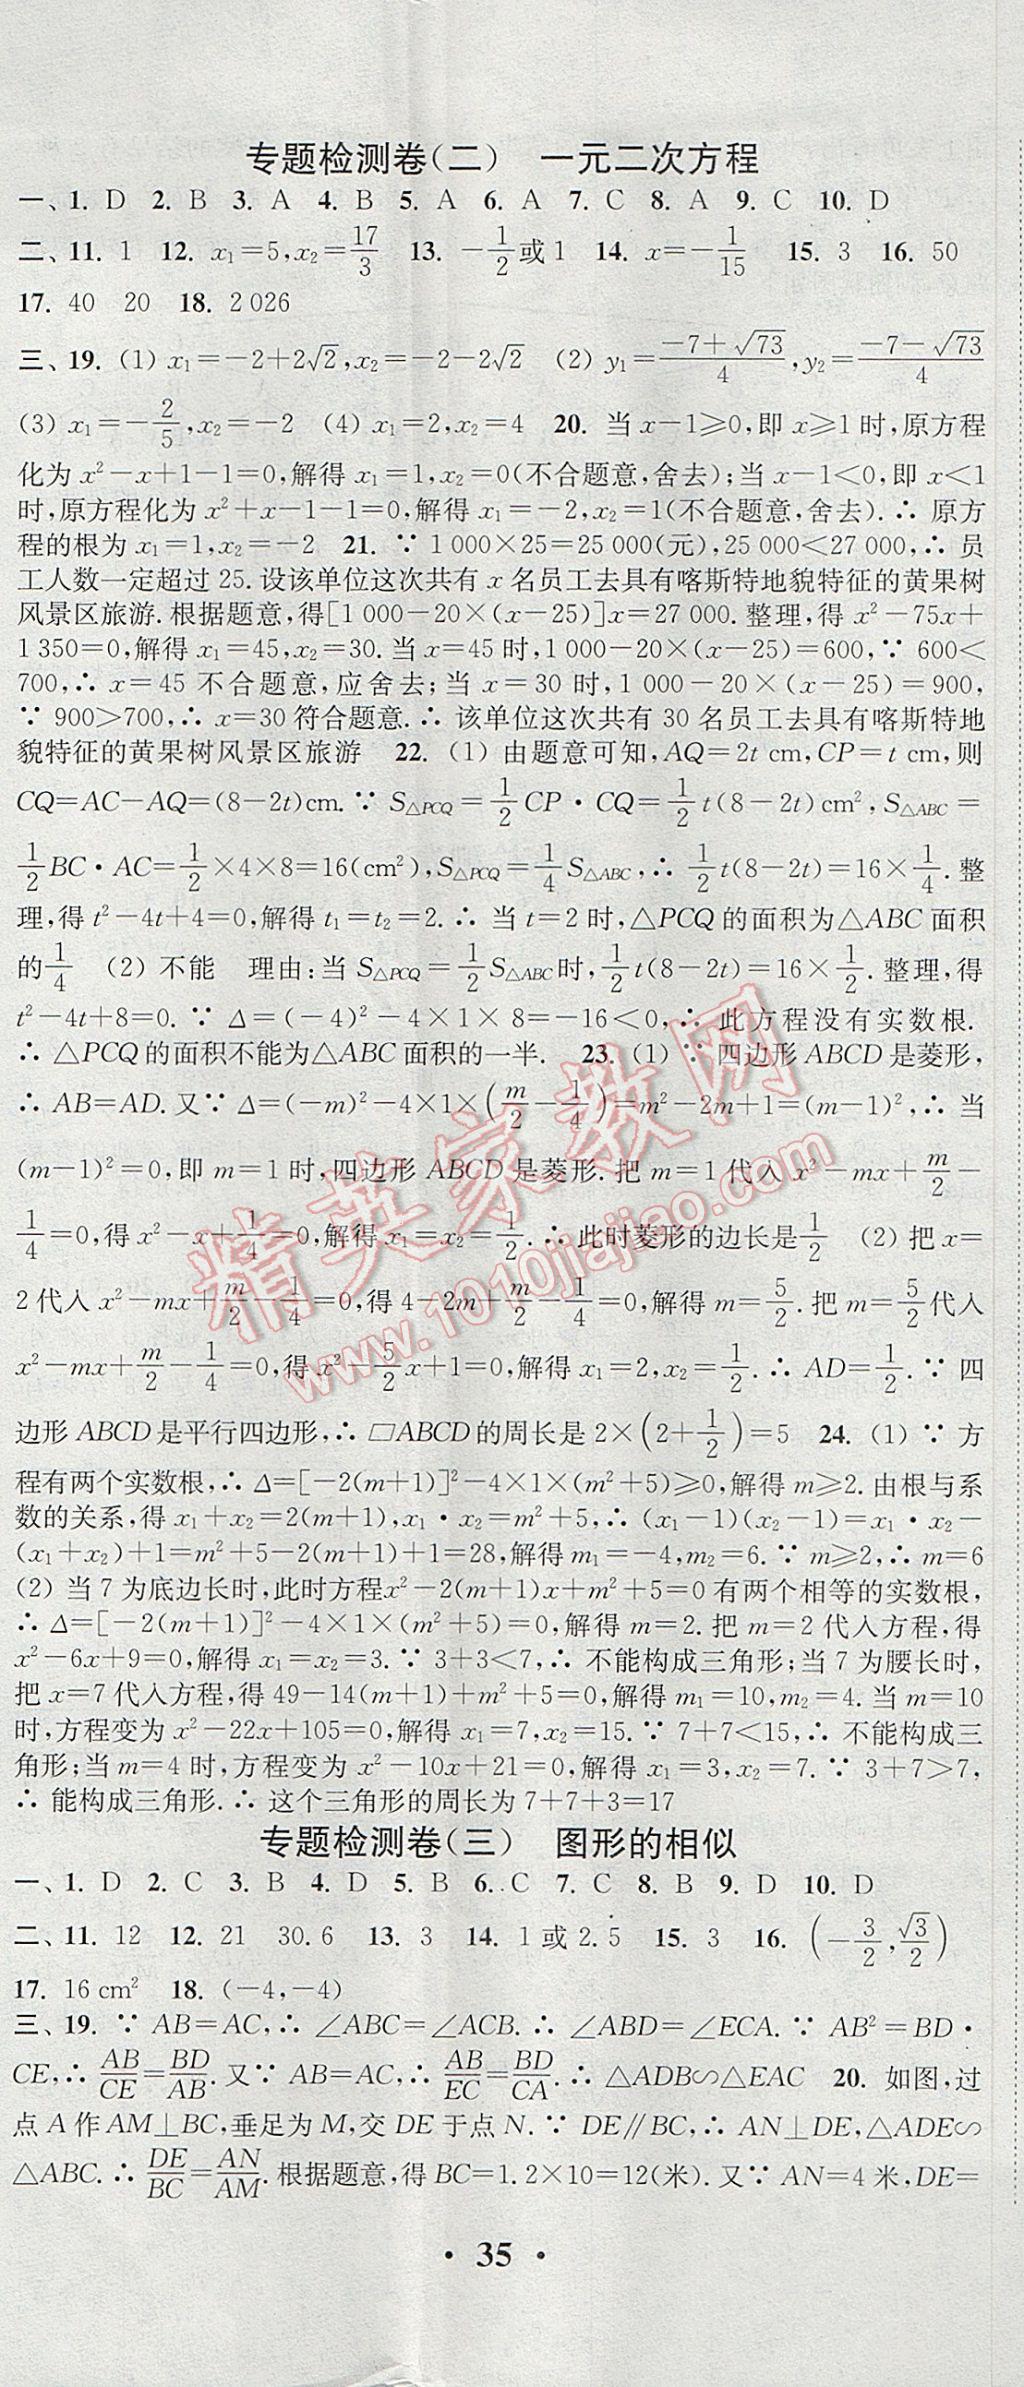 专题检测卷(二) 一元二次方程
一、1. D 2. B 3. A 4. B 5. A 6. A 7. C 8. A 9. C 10. D
二、11. 1 12. x₁=5,x₂=17/3 13. -1/2或1 14. x=-1/15 15. 3 16. 50
17. 40 20 18. 2 026
三、19. (1) x₁=-2+2√2,x₂=-2-2√2 (2) y₁=(-7+√73)/4,y₂=(-7-√73)/4
(3) x₁=-2/5,x₂=-2 (4) x₁=2,x₂=4 20. 当x-1≥0,即x≥1时,原方程
化为x²-x+1-1=0,解得x₁=1,x₂=0(不合题意,舍去);当x-1<0,即x<1
时,原方程化为x²+x-1-1=0,解得x₁=-2,x₂=1(不合题意,舍去).∴ 原方
程的根为x₁=1,x₂=-2 21. ∵ 1 000×25=25 000(元),25 000<27 000,∴ 员
工人数一定超过25.设该单位这次共有x名员工去具有喀斯特地貌特征的黄果树
风景区旅游.根据题意,得[1 000-20×(x-25)]x=27 000.整理,得x²-75x+
1 350=0,解得x₁=45,x₂=30.当x=45时,1 000-20×(x-25)=600,∵ 600<
700,∴ x=45不合题意,应舍去;当x=30时,1 000-20×(x-25)=900,
∵ 900>700,∴ x=30符合题意.∴ 该单位这次共有30名员工去具有喀斯特地
貌特征的黄果树风景区旅游 22. (1) 由题意可知,AQ=2t cm,CP=t cm,则
CQ=AC-AQ=(8-2t)cm.∵ S△PCQ=1/2CP·CQ=1/2t(8-2t)cm²,S△ABC=
1/2BC·AC=1/2×4×8=16(cm²),S△PCQ=1/4S△ABC,∴ 1/2t(8-2t)=16×1/4.整
理,得t²-4t+4=0,解得t₁=t₂=2.∴ 当t=2时,△PCQ的面积为△ABC面积
的1/4 (2) 不能 理由:当S△PCQ=1/2S△ABC时,1/2t(8-2t)=16×1/2.整理,得
t²-4t+8=0.∵ Δ=(-4)²-4×1×8=-16<0,∴ 此方程没有实数根.
∴ △PCQ的面积不能为△ABC面积的一半. 23. (1) ∵ 四边形ABCD是菱形,
∴ AB=AD.又∵ Δ=(-m)²-4×1×(m/2-1/4)=m²-2m+1=(m-1)²,∴ 当
(m-1)²=0,即m=1时,四边形ABCD是菱形.把m=1代入x²-mx+m/2-
1/4=0,得x²-x+1/4=0,解得x₁=x₂=1/2.∴ 此时菱形的边长是1/2 (2) 把x=
2代入x²-mx+m/2-1/4=0,得4-2m+m/2-1/4=0,解得m=5/2.把m=5/2代入
x²-mx+m/2-1/4=0,得x²-5/2x+1=0,解得x₁=2,x₂=1/2.∴ AD=1/2.∵ 四
边形ABCD是平行四边形,∴ ▱ABCD的周长是2×(2+1/2)=5 24. (1) ∵ 方
程有两个实数根,∴ Δ=[-2(m+1)]²-4×1×(m²+5)≥0,解得m≥2.由根与系
数的关系,得x₁+x₂=2(m+1),x₁·x₂=m²+5,∴ (x₁-1)(x₂-1)=x₁·x₂-
(x₁+x₂)+1=m²+5-2(m+1)+1=28,解得m₁=-4,m₂=6.∵ m≥2,∴ m=6
(2) 当7为底边长时,此时方程x²-2(m+1)x+m²+5=0有两个相等的实数根,
∴ Δ=[-2(m+1)]²-4×1×(m²+5)=0,解得m=2.把m=2代入方程,得
x²-6x+9=0,解得x₁=x₂=3.∵ 3+3<7,∴ 不能构成三角形;当7为腰长时,
把x=7代入方程,得49-14(m+1)+m²+5=0,解得m₁=10,m₂=4.当m=10
时,方程变为x²-22x+105=0,解得x₁=7,x₂=15.∵ 7+7<15,∴ 不能构成三
角形;当m=4时,方程变为x²-10x+21=0,解得x₁=3,x₂=7.∵ 3+7>7,
∴ 能构成三角形.∴ 这个三角形的周长为7+7+3=17
专题检测卷(三) 图形的相似
一、1. D 2. C 3. B 4. D 5. B 6. C 7. C 8. B 9. D 10. D
二、11. 12 12. 21 30.6 13. 3 14. 1或2.5 15. 3 16. (-3/2,√3/2)
17. 16 cm² 18. (-4,-4)
三、19. ∵ AB=AC,∴ ∠ABC=∠ACB.∴ ∠ABD=∠ECA.∵ AB²=BD·
CE,∴ AB/CE=BD/AB.又∵ AB=AC,∴ AB/EC=BD/CA.∴ △ADB∽△EAC 20. 如图,过
点A作AM⊥BC,垂足为M,交DE于点N.∵ DE∥BC,∴ AN⊥DE,△ADE∽
△ABC.∴ DE/BC=AN/AM.根据题意,得BC=1.2×10=12(米).又∵ AN=4米,DE=
· 35 ·
精英家教网
www.1010jiajiao.com